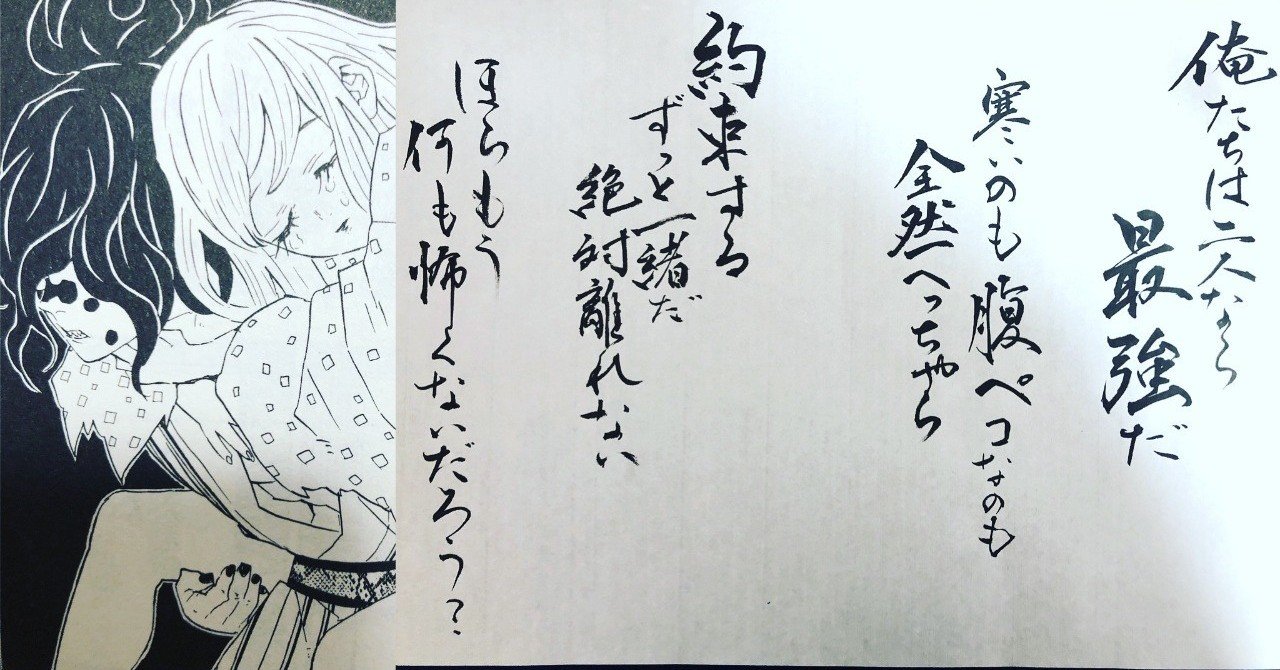 俺たちは二人なら
最強だ
寒いのも腹ペコなのも
全然へっちゃら
約束する
ずっと一緒だ
絶対離れない
ほらもう
何も怖くないだろう？